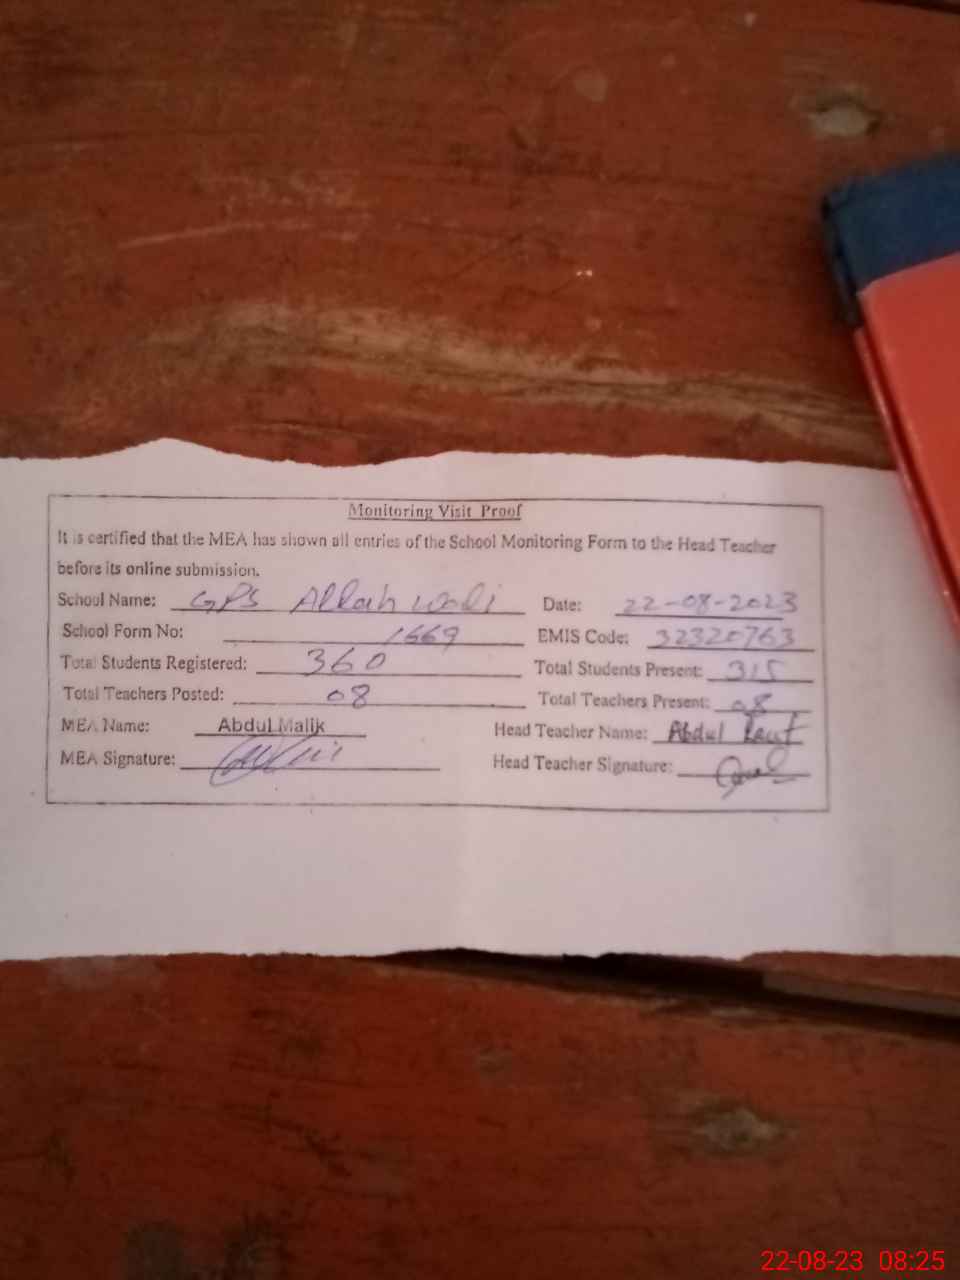 Monitoring Visit Proof
It is certified that the MEA has shown all entries of the School Monitoring Form to the Head Teacher
before its online submission.
School Name: GPS Allah Wali Date: 22-08-2023
School Form No: 1669 EMIS Code: 32320763
Total Students Registered: 360 Total Students Present: 315
Total Teachers Posted: 08 Total Teachers Present: 08
MEA Name: Abdul Malik Head Teacher Name: Abdul Rauf
MEA Signature: Head Teacher Signature:
22-08-23 08:25